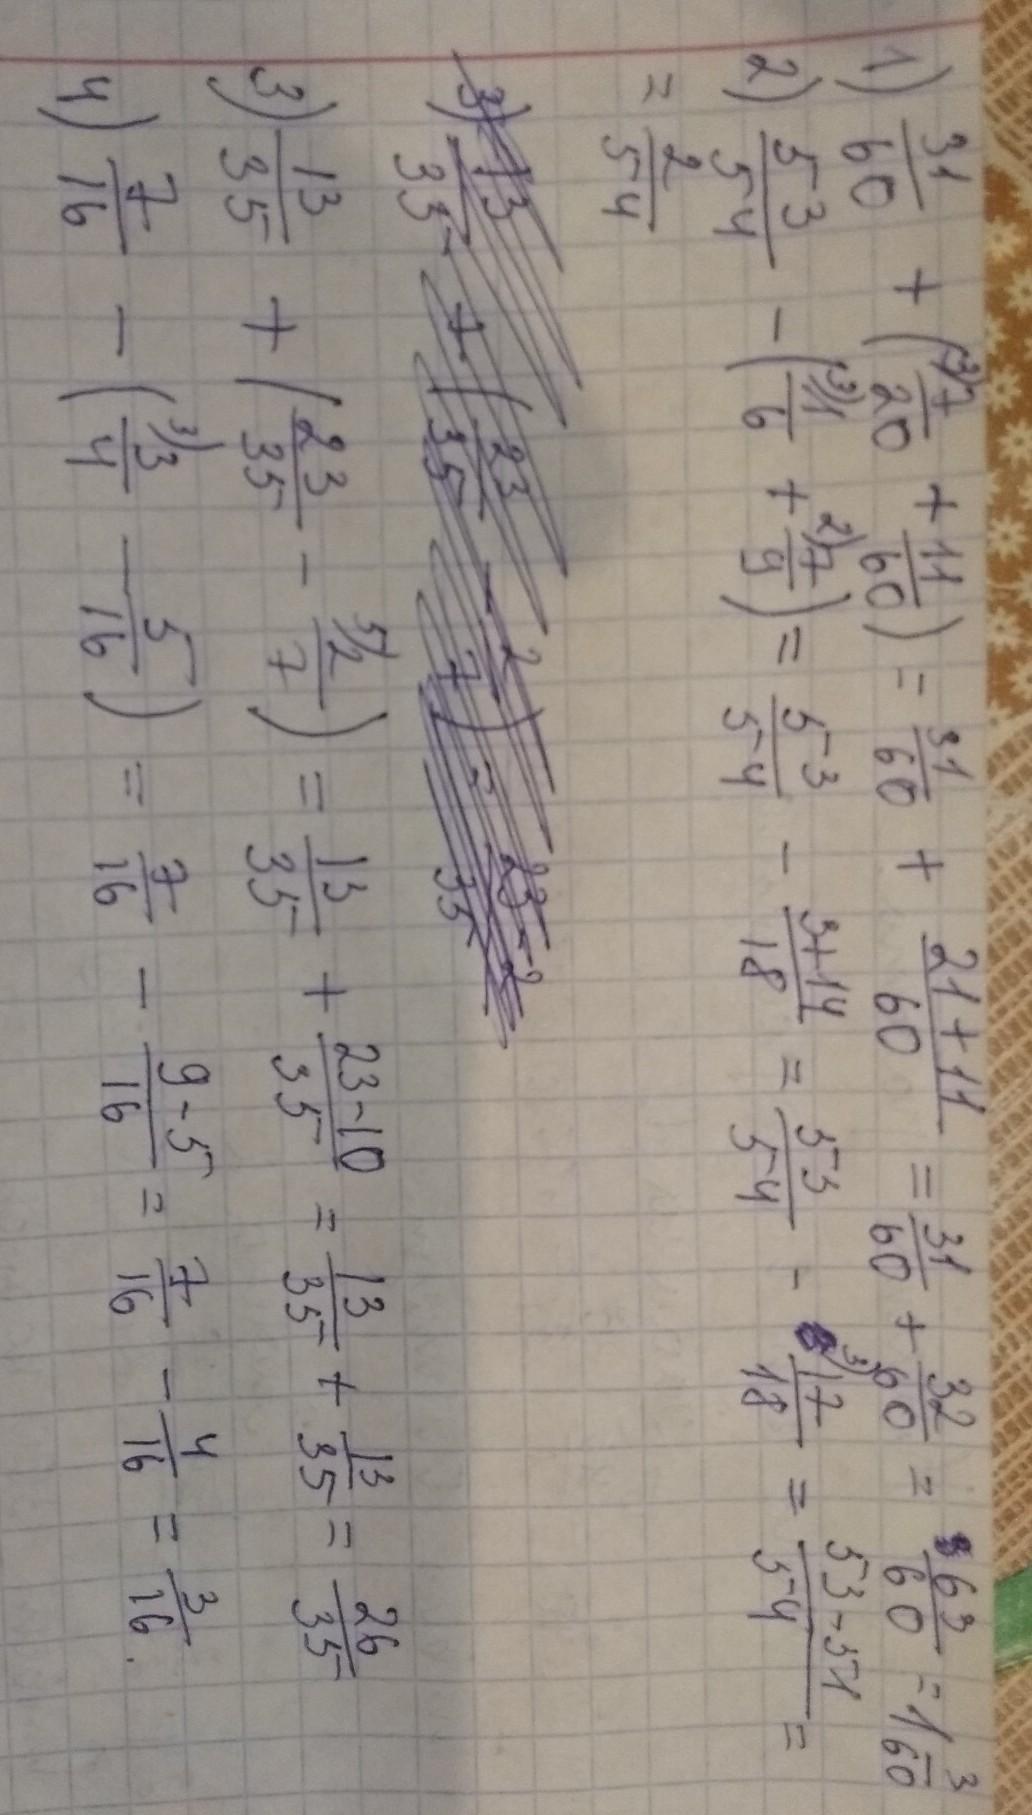 1) 31/60 + (3)7/20 + 11/60) = 31/60 + 21+11/60 = 31/60 + 32/60 = 63/60 = 1 3/60
2) 53/54 - (3)1/6 + 2)7/9) = 53/54 - 3+14/18 = 53/54 - 3)17/18 = 53-51/54 =
= 2/54
3) 13/35 + (23/35 - 2/7) = 23-2/35
3) 13/35 + (23/35 - 5)2/7) = 13/35 + 23-10/35 = 13/35 + 13/35 = 26/35
4) 7/16 - (3)3/4 - 5/16) = 7/16 - 9-5/16 = 7/16 - 4/16 = 3/16.